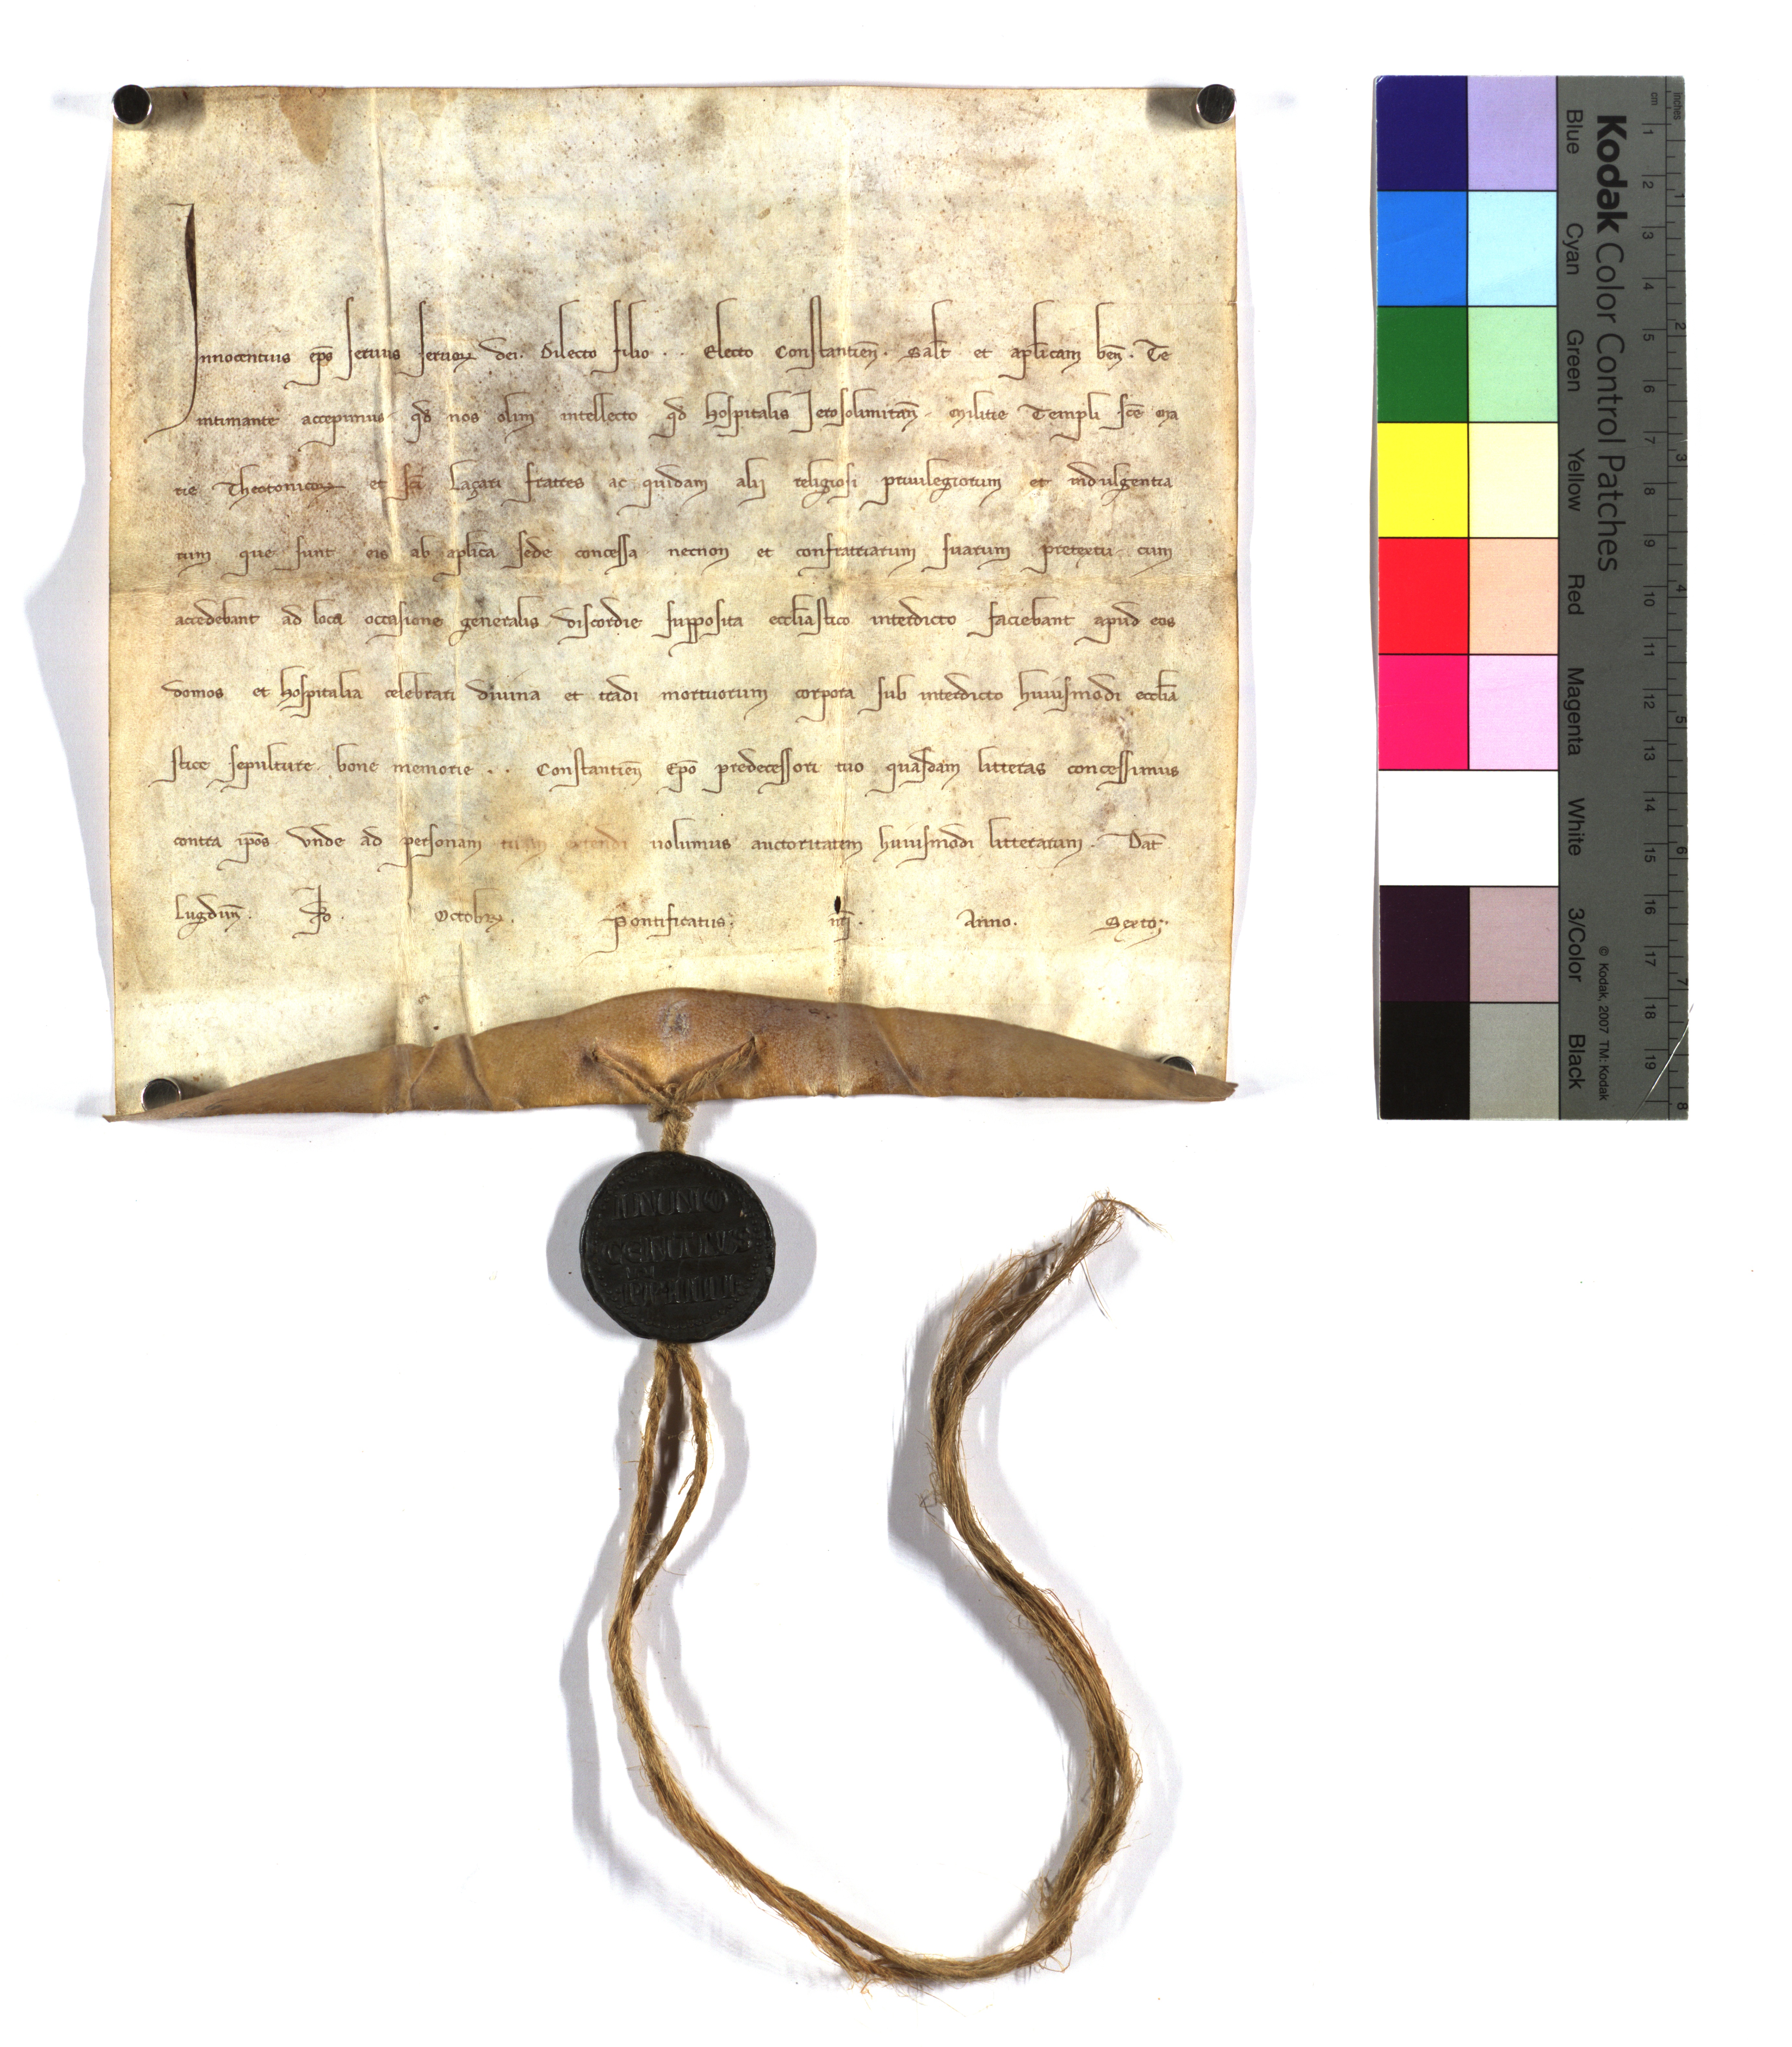 Innocentius ep̄s servus servoꝝ dei. Dilecto filio . . Electo Constantien̄. Salt̄ et apl̄icam ben̄. Te
intimante accepimus. qd̄ nos olim intellecto qd̄ hospitalis Jerosolimitan̄. Militie Templi sc̄e Ma
rie Theotonicoꝝ et sc̄i Laçari fratres ac quidam alij religiosi privilegiorum et indulgentia
rum que sunt eis ab apl̄ica sede concessa necnon et confratriarum suarum pretextu. cum
accedebant ad loca occasione generalis discordie supposita eccl̄iastico interdicto faciebant apud eos
domos et hospitalia celebrari divina et tradi mortuorum corpora sub interdicto huiusmodi eccl̄ia
stice sepulture. bone memorie . . Constantien̄ Ep̄o predecessori tuo quasdam litteras concessimus
contra ip̄os Vnde ad personam tuam extendi uolumus auctoritatem huiusmodi litterarum. Dat̄
Lugdun̄. Octobꝝ. Pontificatus. nr̄i. Anno. Sexto.
INNO
CENTIUS
PP IIII
Kodak Color Control Patches
Blue Cyan Green Yellow Red Magenta White 3/Color Black
© Kodak, 2007 TM: Kodak
cm 1 2 3 4 5 6 7 8 9 10 11 12 13 14 15 16 17 18 19
inches 1 2 3 4 5 6 7 8